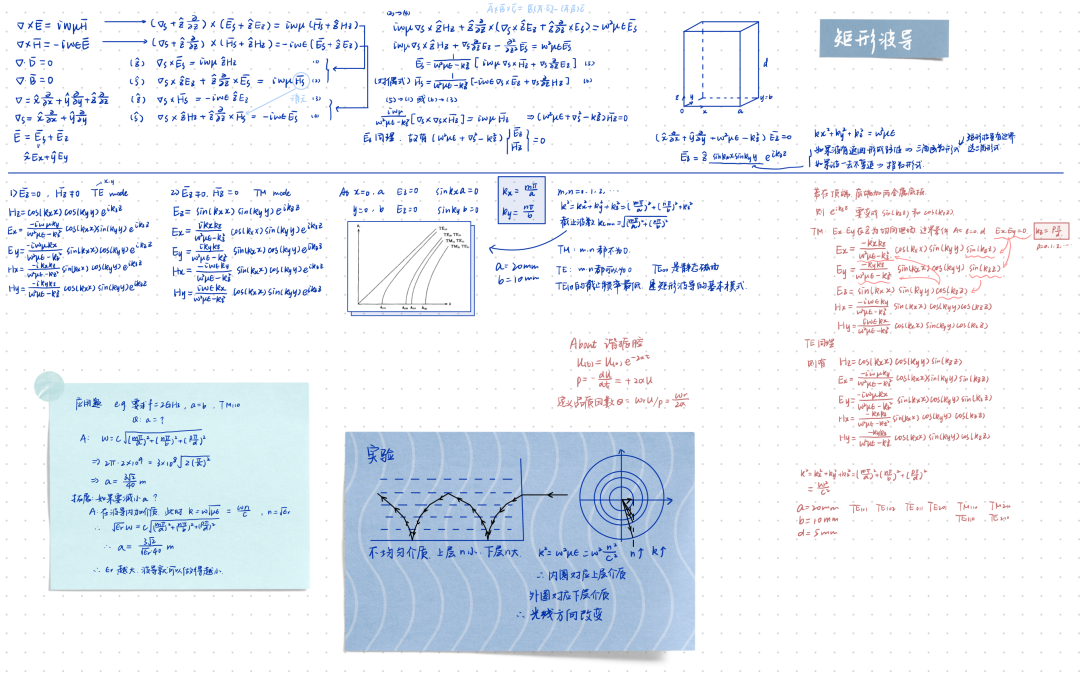 矩形波导
∇×E̅ = iωμH̅ ⟶ (∇s + ẑ ∂/∂z) × (E̅s + ẑEz) = iωμ (H̅s + ẑHz)
∇×H̅ = -iωεE̅ ⟶ (∇s + ẑ ∂/∂z) × (H̅s + ẑHz) = -iωε (E̅s + ẑEz)
∇·D̅ = 0 (ẑ) ∇s×E̅s = iωμ ẑHz (1)
∇·B̅ = 0 (ŝ) ∇s×ẑEz + ẑ ∂/∂z × E̅s = iωμ H̅s (2)
∇ = x̂ ∂/∂x + ŷ ∂/∂y + ẑ ∂/∂z (ẑ) ∇s×H̅s = -iωε ẑEz (3)
∇s = x̂ ∂/∂x + ŷ ∂/∂y (ŝ) ∇s×ẑHz + ẑ ∂/∂z × H̅s = -iωε E̅s (4)
E̅ = E̅s + E̅z
x̂Ex + ŷEy
(2)→(4)
iωμ∇s×ẑHz + ẑ ∂/∂z × (∇s×ẑEz + ẑ ∂/∂z × E̅s) = ω²με E̅s
iωμ∇s×ẑHz + ∇s ∂/∂z Ez - ∂²/∂z² E̅s = ω²με E̅s
E̅s = 1/(ω²με-kz²) [iωμ ∇s×H̅z + ∇s ∂/∂z Ez] (5)
(对偶式) H̅s = 1/(ω²με-kz²) [-iωε ∇s×E̅z + ∇s ∂/∂z Hz] (6)
(5)→(1) 或 (6)→(3)
iωμ/(ω²με-kz²) [∇s×∇s×H̅z] = iωμ H̅z ⇒ (ω²με+∇s²-kz²)H̅z = 0
Ez 同理. 故有 (ω²με + ∇s² - kz²) {E̅z H̅z} = 0
d
z y
x a
y=b
(x̂ ∂²/∂x² + ŷ ∂²/∂y² - ω²με - kz²) E̅z = 0
E̅z = ẑ sinkxx sinkyy e^{ikzz}
kx²+ky²+kz² = ω²με
如果没有返回形成驻波 ⇒ 三角函数形式
如果波一去不复返 ⇒ 指数形式.
1) E̅z=0, H̅z≠0 TE mode
Hz = cos(kxx) cos(kyy) e^{ikzz}
Ex = -iωμky/(ω²με-kz²) cos(kxx) sin(kyy) e^{ikzz}
Ey = -iωμkx/(ω²με-kz²) sin(kxx) cos(kyy) e^{ikzz}
Hx = -ikxkz/(ω²με-kz²) sin(kxx) cos(kyy) e^{ikzz}
Hy = -ikykz/(ω²με-kz²) cos(kxx) sin(kyy) e^{ikzz}
2) E̅z≠0, H̅z=0 TM mode
Ez = sin(kxx) sin(kyy) e^{ikzz}
Ex = ikxkz/(ω²με-kz²) cos(kxx) sin(kyy) e^{ikzz}
Ey = ikykz/(ω²με-kz²) sin(kxx) cos(kyy) e^{ikzz}
Hx = -iωεky/(ω²με-kz²) sin(kxx) cos(kyy) e^{ikzz}
Hy = iωεkx/(ω²με-kz²) cos(kxx) sin(kyy) e^{ikzz}
At x=0, a Ez=0 sinkxa=0
y=0, b Ez=0 sinkyb=0
kx = mπ/a
ky = nπ/b
m,n=0,1,2,...
k² = kx²+ky²+kz² = (mπ/a)²+(nπ/b)²+kz²
截止波数 kcmn = √((mπ/a)²+(nπ/b)²)
TM: m.n 都不为0.
TE: m.n 都可以为0 TE00 是静态磁场
TE10的截止频率最低 是矩形波导的基本模式.
a=20mm
b=10mm
若在顶端, 底端加两金属底板.
则 e^{ikzz} 要变成 sin(kzz) 和 cos(kzz).
Ex Ey=0
kz = pπ/d
p=0,1,2,...
Ex = -kxkz/(ω²με-kz²) cos(kxx) sin(kyy) sin(kzz)
Ey = -kykz/(ω²με-kz²) sin(kxx) cos(kyy) sin(kzz)
Ez = sin(kxx) sin(kyy) cos(kzz)
Hx = -iωεky/(ω²με-kz²) sin(kxx) cos(kyy) cos(kzz)
Hy = iωεkx/(ω²με-kz²) cos(kxx) sin(kyy) cos(kzz)
TE同理
则有 Hz = cos(kxx) cos(kyy) sin(kzz)
Ex = -iωμky/(ω²με-kz²) cos(kxx) sin(kyy) sin(kzz)
Ey = -iωμkx/(ω²με-kz²) sin(kxx) cos(kyy) sin(kzz)
Hx = -kxkz/(ω²με-kz²) sin(kxx) cos(kyy) cos(kzz)
Hy = -kykz/(ω²με-kz²) cos(kxx) sin(kyy) cos(kzz)
k² = kx²+ky²+kz² = (mπ/a)²+(nπ/b)²+(pπ/d)²
= ω²/c²
a=20mm TE101 TE102 TE011 TE201 TM110 TM210
b=10mm
d=5mm
About 谐振腔
U(t) = U(0) e^{-2αt}
P = -dU/dt = +2αU
定义品质因数 Q = ωrU/P = ωr/2α
应用题 e.g 要求 f=2GHz, a=b, TM110
Q: a=?
A: ω = c√((mπ/a)²+(nπ/b)²+(pπ/d)²)
⇒ 2π·2×10⁹ = 3×10⁸ √(2(π/a)²)
⇒ a = 3√2/40 m
拓展: 如果要减小a?
A: 在波导内加介质, 此时 k = ω√με = ωn/c, n=√εr
∴ √εr ω = c√((mπ/a)²+(nπ/b)²+(pπ/d)²)
∴ a = 3√2/(√εr 40) m
∴ εr 越大, 波导就可以做得越小.
实验
不均匀介质, 上层n小, 下层n大. k² = ω²με = ω² n²/c² n↑ k↑
∴ 内圆对应上层介质
外圆对应下层介质
∴ 光线方向改变